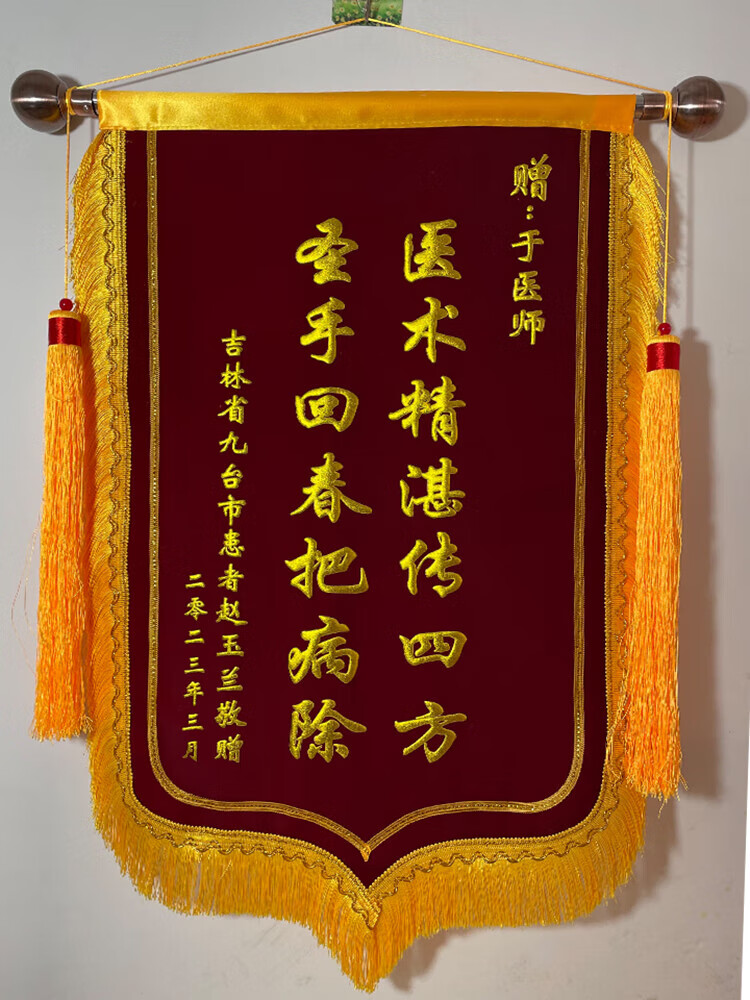 赠：于医师
医术精湛传四方
圣手回春把病除
吉林省九台市患者赵玉兰敬赠
二零二三年三月